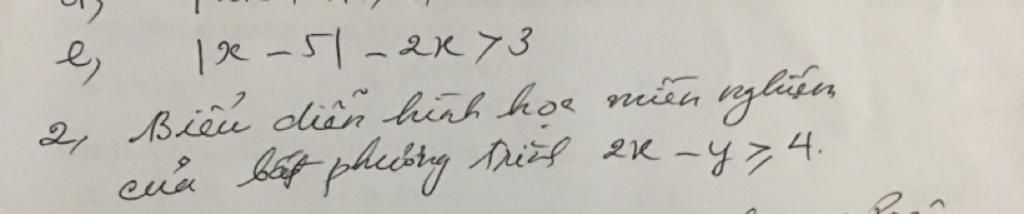 e, |x - 5| - 2x > 3
2, Biểu diễn hình học miền nghiệm
của bất phương trình 2x - y ≥ 4.